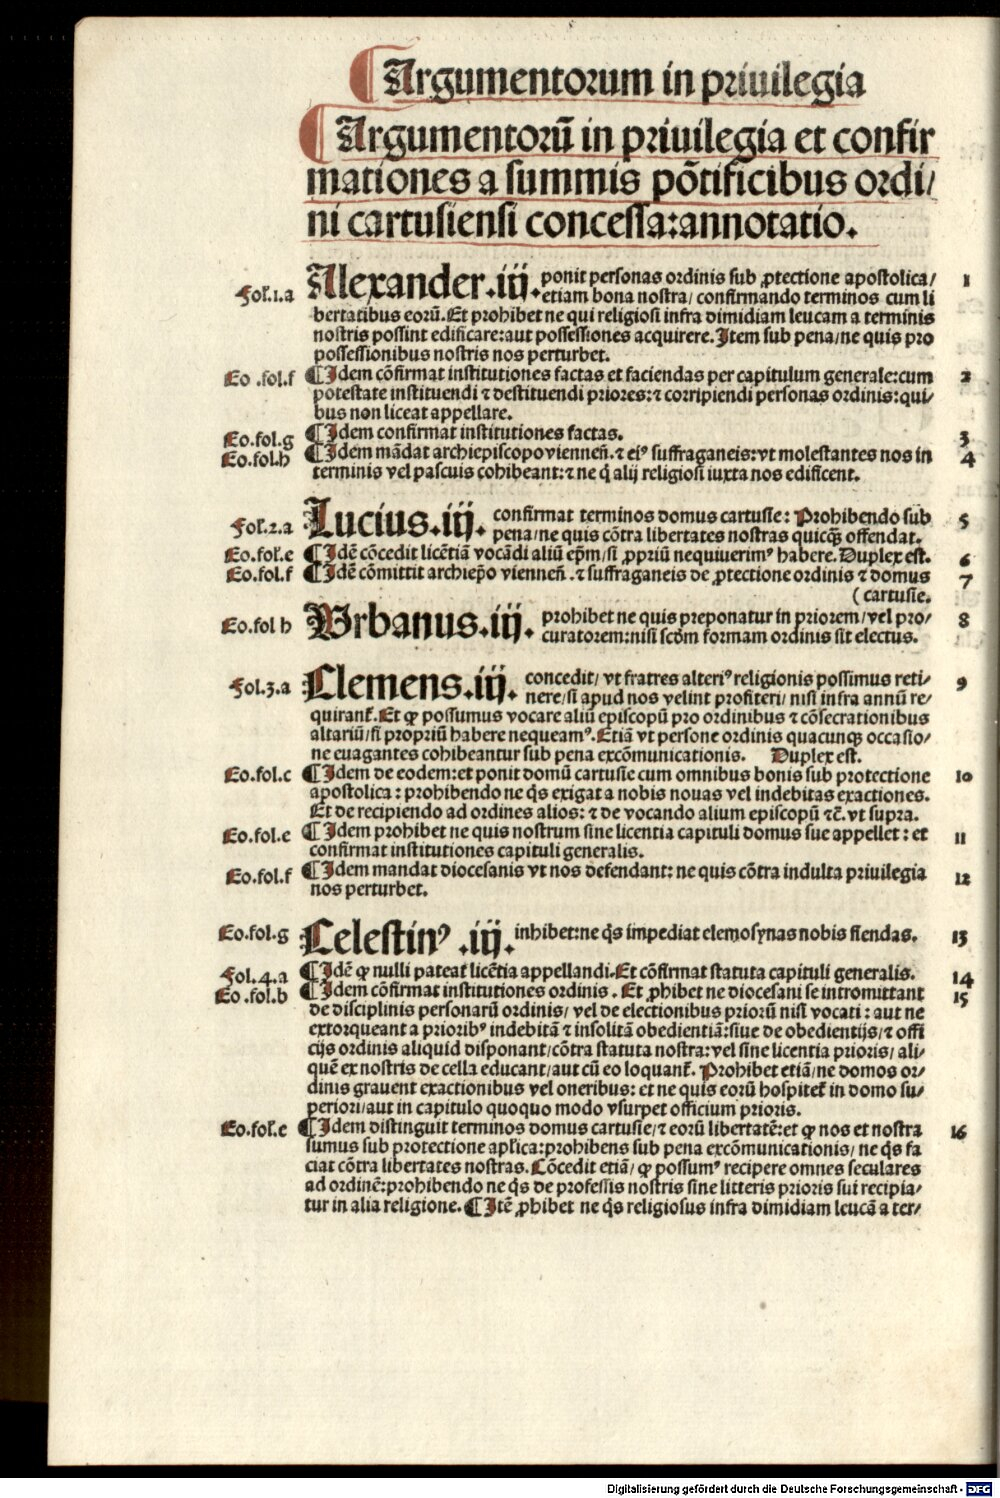 ¶ Argumentorum in priuilegia
¶ Argumentorũ in priuilegia et confir
mationes a summis põtificibus ordi/
ni cartusiensi concessa: annotatio.
Fol.1.a Alexander .iij. ponit personas ordinis sub ꝓtectione apostolica/ 1
etiam bona nostra/ confirmando terminos cum li
bertatibus eorũ. Et prohibet ne qui religiosi infra dimidiam leucam a terminis
nostris possint edificare: aut possessiones acquirere. Item sub pena/ ne quis pro
possessionibus nostris nos perturbet.
Eo .fol.f ¶ Idem cõfirmat institutiones factas et faciendas per capitulum generale: cum 2
potestate instituendi ⁊ destituendi priores: ⁊ corripiendi personas ordinis: qui/
bus non liceat appellare.
Eo.fol.g ¶ Idem confirmat institutiones factas. 3
Eo.fol.h ¶ Idem mãdat archiepiscopo viennen̄. ⁊ eiꝰ suffraganeis: vt molestantes nos in 4
terminis vel pascuis cohibeant: ⁊ ne q̃ alij religiosi iuxta nos edificent.
Fol.2.a Lucius .iij. confirmat terminos domus cartusie: Prohibendo sub 5
pena/ ne quis cõtra libertates nostras quicq̃ offendat.
Eo.fol.e ¶ Idẽ cõcedit licẽtiã vocãdi aliũ ep̃m/ si ꝓpriũ nequiuerimꝰ habere. Duplex est. 6
Eo.fol.f ¶ Idẽ cõmittit archiep̃o viennen̄ .⁊ suffraganeis de ꝓtectione ordinis ⁊ domus 7
( cartusie.
Eo.fol h Urbanus .iij. prohibet ne quis preponatur in priorem/ vel pro/ 8
curatorem: nisi scd̃m formam ordinis sit electus.
Fol.3.a Clemens .iij. concedit/ vt fratres alteriꝰ religionis possimus reti/ 9
nere/ si apud nos velint profiteri/ nisi infra annũ re/
quirant̃. Et ꝙ possumus vocare aliũ episcopũ pro ordinibus ⁊ cõsecrationibus
altariũ/ si propriũ habere nequeamꝰ. Etiã vt persone ordinis quacunqꝫ occasio/
ne euagantes cohibeantur sub pena excõmunicationis. Duplex est.
Eo.fol.c ¶ Idem de eodem: et ponit domũ cartusie cum omnibus bonis sub protectione 10
apostolica: prohibendo ne q̃s exigat a nobis nouas vel indebitas exactiones.
Et de recipiendo ad ordines alios: ⁊ de vocando alium episcopũ ⁊c̃. vt supra.
Eo.fol.e ¶ Idem prohibet ne quis nostrum sine licentia capituli domus sue appellet: et 11
confirmat institutiones capituli generalis.
Eo.fol.f ¶ Idem mandat diocesanis vt nos defendant: ne quis cõtra indulta priuilegia 12
nos perturbet.
Eo.fol.g Celestinꝰ .iij. inhibet: ne q̃s impediat elemosynas nobis fiendas. 13
Fol.4.a ¶ Idẽ ꝙ nulli pateat licẽtia appellandi. Et cõfirmat statuta capituli generalis. 14
Eo .fol.b ¶ Idem cõfirmat institutiones ordinis . Et ꝓhibet ne diocesani se intromittant 15
de disciplinis personarũ ordinis/ vel de electionibus priorũ nisi vocati: aut ne
extorqueant a prioribꝰ indebitã ⁊ insolitã obedientiã: siue de obedientijs/ ⁊ offi
cijs ordinis aliquid disponant/ cõtra statuta nostra: vel sine licentia prioris/ ali/
quẽ ex nostris de cella educant/ aut cũ eo loquant̃. Prohibet etiã/ ne domos or/
dinis grauent exactionibus vel oneribus: et ne quis eorũ hospitet̃ in domo su/
periori/ aut in capitulo quoquo modo vsurpet officium prioris.
Eo.fol.e ¶ Idem distinguit terminos domus cartusie/ ⁊ eorũ libertatẽ: et ꝙ nos et nostra 16
sumus sub protectione apl̃ica: prohibens sub pena excõmunicationis/ ne q̃s fa
ciat cõtra libertates nostras. Cõcedit etiã/ ꝙ possumꝰ recipere omnes seculares
ad ordinẽ: prohibendo ne q̃s de professis nostris sine litteris prioris sui recipia/
tur in alia religione. ¶ Itẽ ꝓhibet ne q̃s religiosus infra dimidiam leucã a ter/
Digitalisierung gefördert durch die Deutsche Forschungsgemeinschaft - DFG